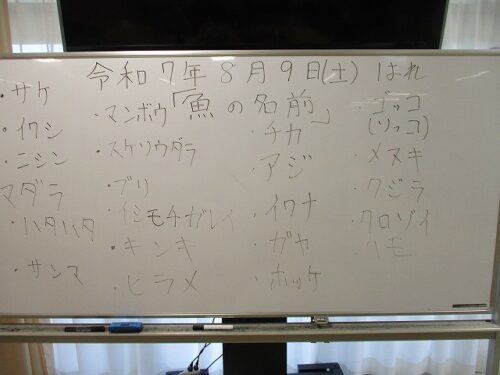 令和7年8月9日(土) はれ
「魚の名前」
・サケ
・イワシ
・ニシン
マダラ
・ハタハタ
・サンマ
・マンボウ
・スケソウダラ
・ブリ
・イシモチガレイ
・キンキ
・ヒラメ
・チカ
・アジ
・イワナ
・ガヤ
・ホッケ
・ゴッコ
(ソッコ)
・メヌキ
・クジラ
・クロゾイ
・ハモ